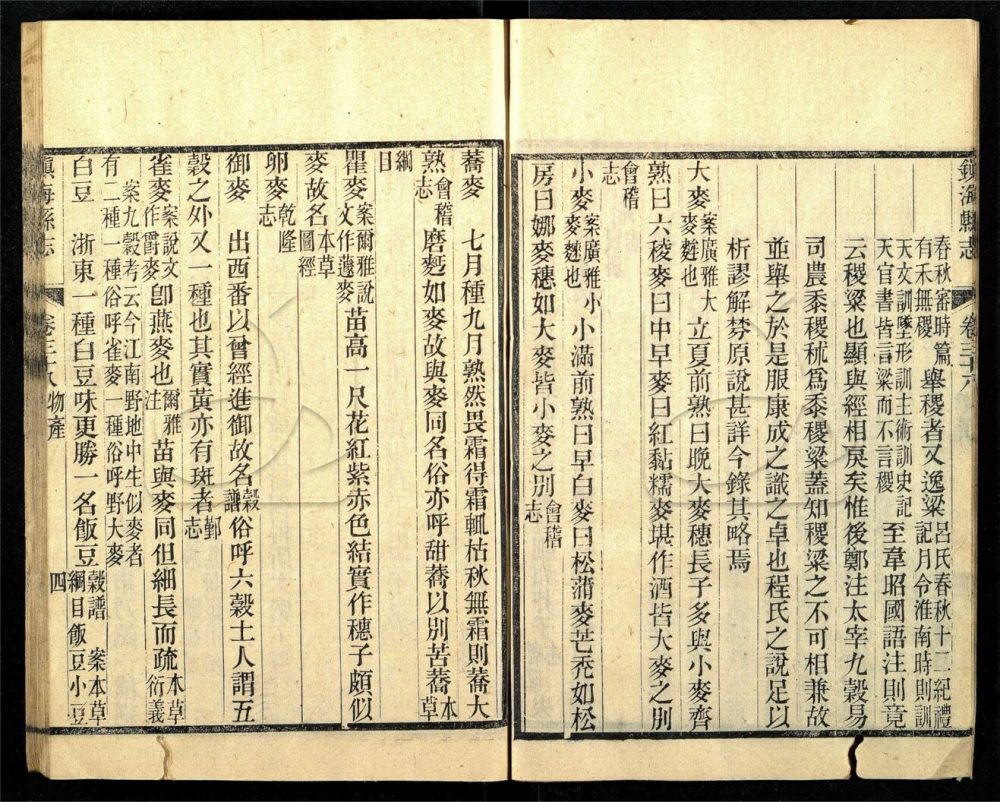 鎮海縣志 卷三十八
春秋審時篇有禾無稷舉稷者又逸粱呂氏春秋十二紀禮記月令淮南時則訓
天文訓墬形訓主術訓史記天官書皆言粱而不言稷至韋昭國語注則竟
云稷粱也顯與經相戾矣惟後鄭注太宰九穀易
司農黍稷秫爲黍稷粱蓋知稷粱之不可相兼故
並舉之於是服康成之識之卓也程氏之說足以
析謬解棼原說甚詳今錄其略焉
大麥案廣雅大麥麰也立夏前熟曰晚大麥穗長子多與小麥齊
熟曰六稜麥曰中早麥曰紅黏糯麥堪作酒皆大麥之別
會稽志
小麥案廣雅小麥麳也小滿前熟曰早白麥曰松蒲麥芒禿如松
房曰娜麥穗如大麥皆小麥之別會稽志
蕎麥 七月種九月熟然畏霜得霜輒枯秋無霜則蕎大
熟會稽志磨麪如麥故與麥同名俗亦呼甜蕎以別苦蕎本草
綱目
瞿麥案爾雅說文作蘧麥苗高一尺花紅紫赤色結實作穗子頗似
麥故名本草圖經
卵麥乾隆志
御麥 出西番以曾經進御故名穀譜俗呼六穀土人謂五
穀之外又一種也其實黃亦有斑者鄞志
雀麥案說文作爵麥卽燕麥也爾雅注苗與麥同但細長而疏本草衍義
案九穀考云今江南野地中生似麥者
有二種一種俗呼雀麥一種俗呼野大麥
白豆 浙東一種白豆味更勝一名飯豆穀譜 案本草綱目飯豆小豆
鎮海縣志 卷三十八 物產 四